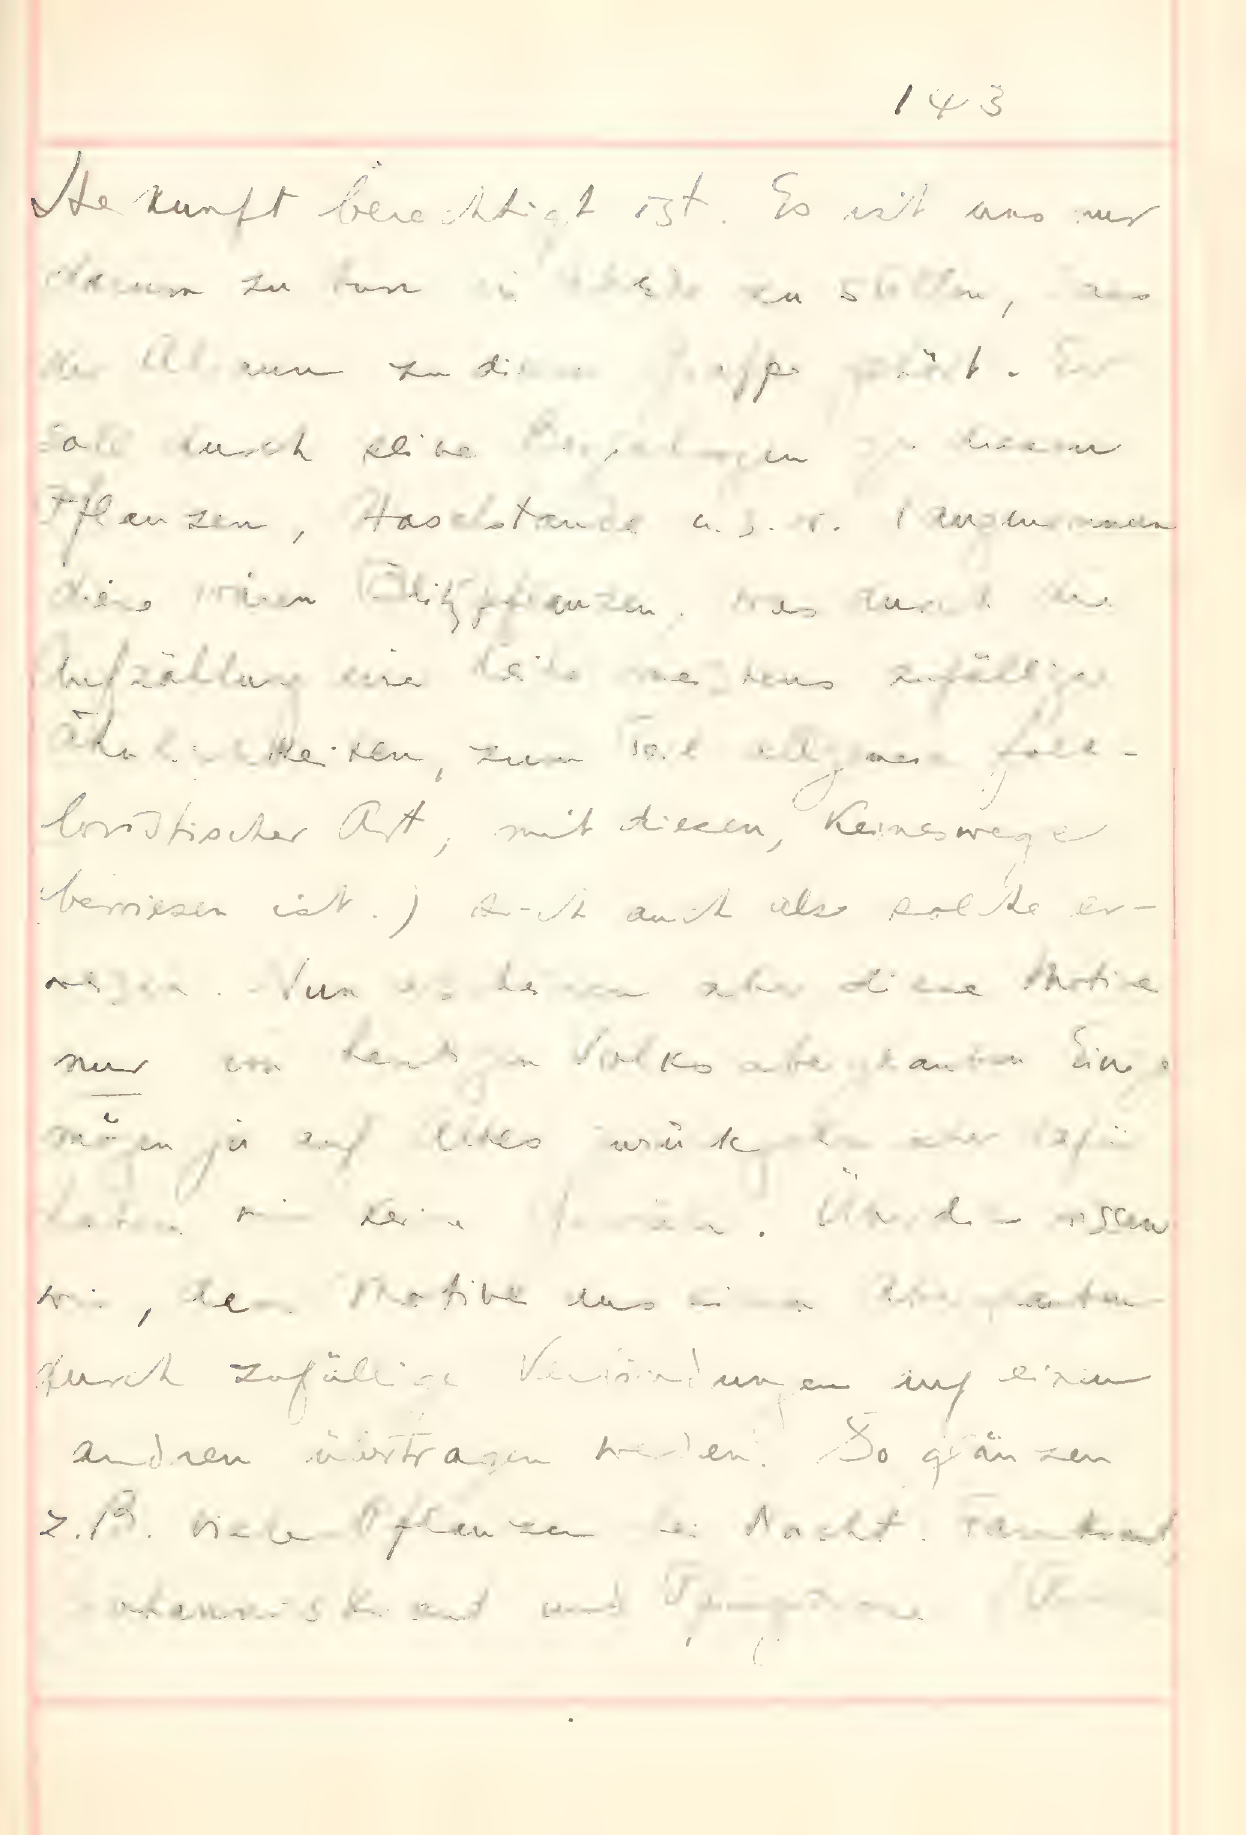 143
Herkunft berechtigt ist. Es ist uns nur
darum zu tun in Abrede zu stellen, dass
der Alraun zu dieser Gruppe gehört. Er
soll durch seine Beziehungen zu diesen
Pflanzen, Haselstaude u.s.w. (angenommen
diese wären Blitzpflanzen, was durch die
Aufzählung einer Reihe meistens zufälliger
Ähnlichkeiten, zum Teil allgemein folk-
loristischer Art, mit diesen, keineswegs
bewiesen ist.) sich auch als solche er-
weisen. Nun erscheinen aber diese Motive
nur im heutigen Volksaberglauben. Einige
mögen ja auf altes zurückgehen aber dafür
haben wir keine. Überdies wissen
wir, dass Motive aus einem Aberglauben
durch zufällige Verbindungen auf einen
andren übertragen werden. So glänzen
z.B. viele Pflanzen bei Nacht. Farnkraut,
Johanniskraut und Pfingstrose